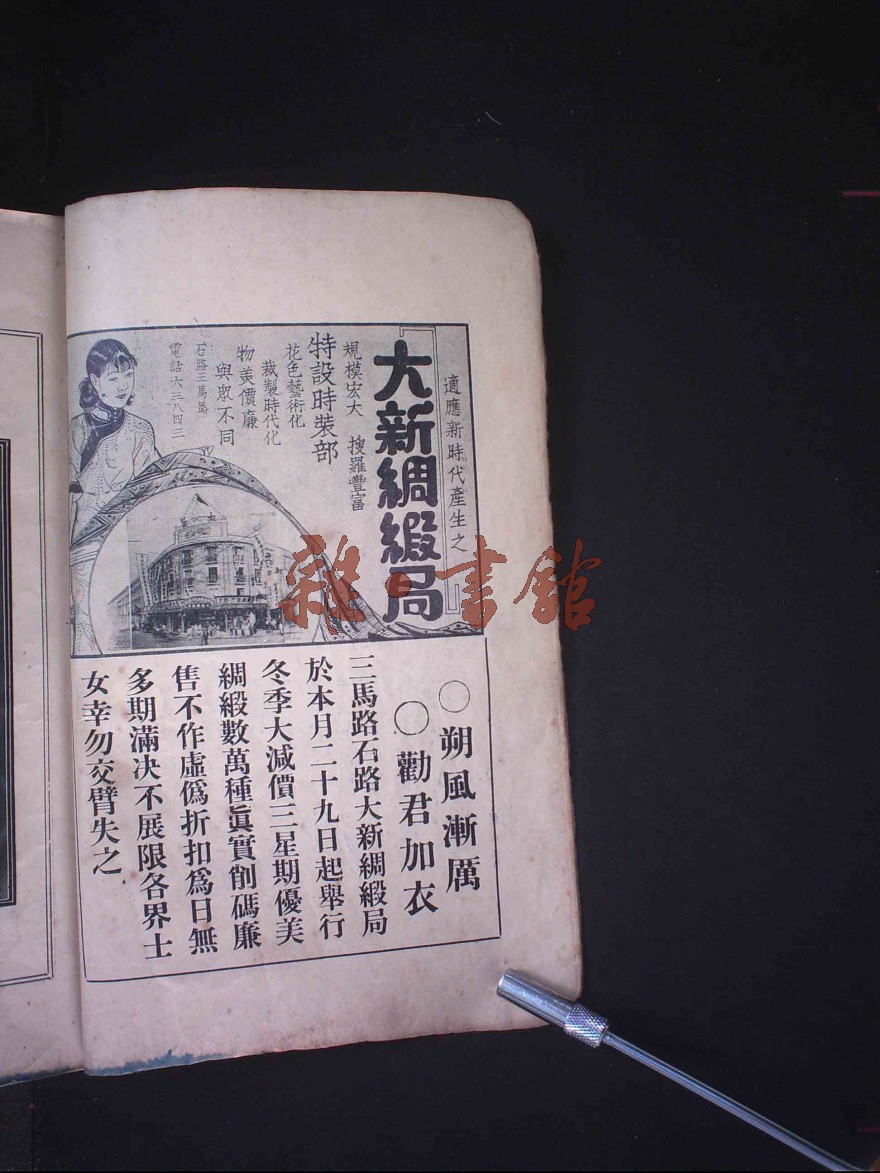 適應新時代產生之
大新綢緞局
規模宏大 搜羅豐富
特設時裝部
花色藝術化
裁製時代化
物美價廉
與眾不同
石路三馬路
電話六三八四三
〇朔風漸厲
〇勸君加衣
三馬路石路大新綢緞局
於本月二十九日起舉行
冬季大減價三星期優美
綢緞數萬種眞實削碼廉
售不作虛僞折扣爲日無
多期滿决不展限各界士
女幸勿交臂失之
雜·書館